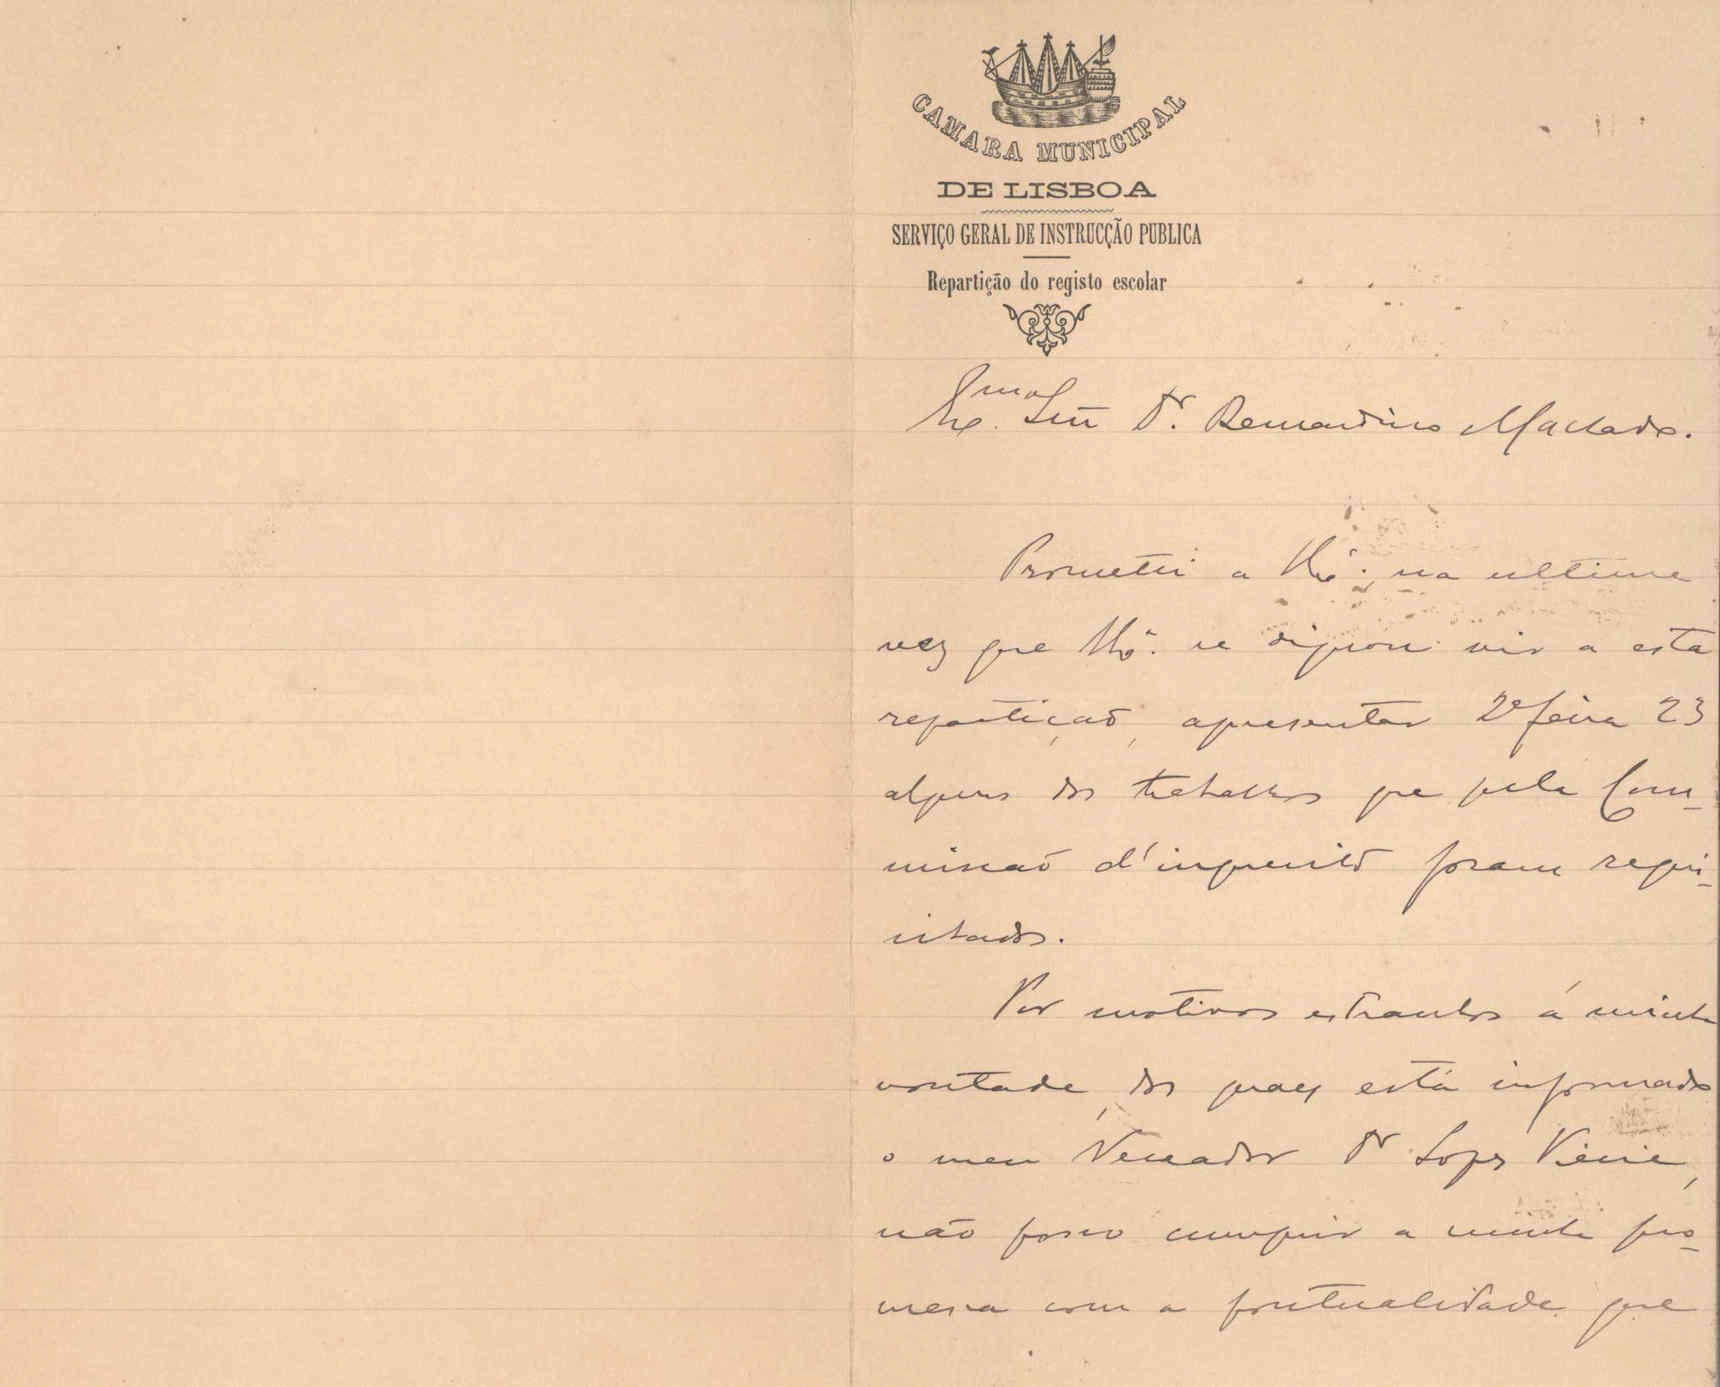 CAMARA MUNICIPAL
DE LISBOA
SERVIÇO GERAL DE INSTRUCÇÃO PUBLICA
Repartição do registo escolar
Ex.mo Snr Dr. Bernardino Machado.
Prometti a V. Ex.ª, na ultima
vez que V. Ex.ª se dignou vir a esta
repartição, apresentar 2ª feira 23
alguns dos trabalhos que pela Com-
missão d'inquerito foram requi-
sitados.
Por motivos estranhos á minha
vontade, dos quaes está informado
o meu Vereador Dr Lopes Vieira,
não posso cumprir a minha pro-
messa com a pontualidade que